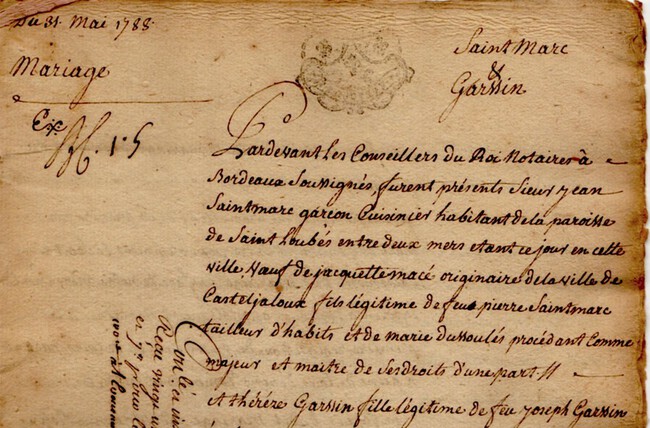 Du 31. Mai 1788.
Mariage
Saint Marc
&
Garssin
Pardevant Les Conseillers du Roi Notaires à
Bordeaux Soussignés, furent présents Sieur jean
Saintmarc garcon Cuisinier habitant de la paroisse
de Saint Loubés entre deux mers etant ce jour en cette
ville veuf de jacquette macé originaire de la ville de
Casteljaloux fils légitime de feu pierre Saintmarc
tailleur d'habits et de marie dussoulés procédant Comme
majeur et maitre de ses droits d'une part //
Et thérèze Garssin fille légitime de feu joseph Garssin